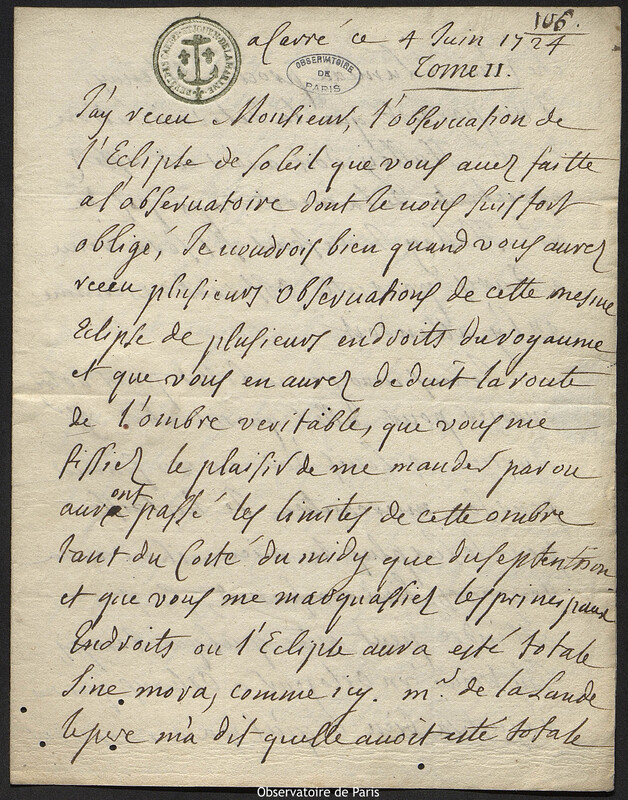 106.
a Carré ce 4 Juin 1724
Tome II.
DEP. DES CARTES ET JOURN. DE LA MARINE
OBSERVATOIRE
DE
PARIS
J'ay receu Monsieur, l'observation de
l'Eclipse de soleil que vous avez faitte
a l'observatoire dont je vous suis fort
obligé, Je voudrois bien quand vous aurez
receu plusieurs observations de cette mesme
Eclipse de plusieurs endroits du royaume
et que vous en aurez deduit la route
de l'ombre veritable, que vous me
fissiez le plaisir de me mander par ou
auront passé les limites de cette ombre
tant du Costé du midy que du septentrion
et que vous me marquassiez les principaux
Endroits ou l'Eclipse aura esté totale
Sine mora, comme icy. mr. de la Lande
le pere m'a dit quelle avoit esté totale
Observatoire de Paris